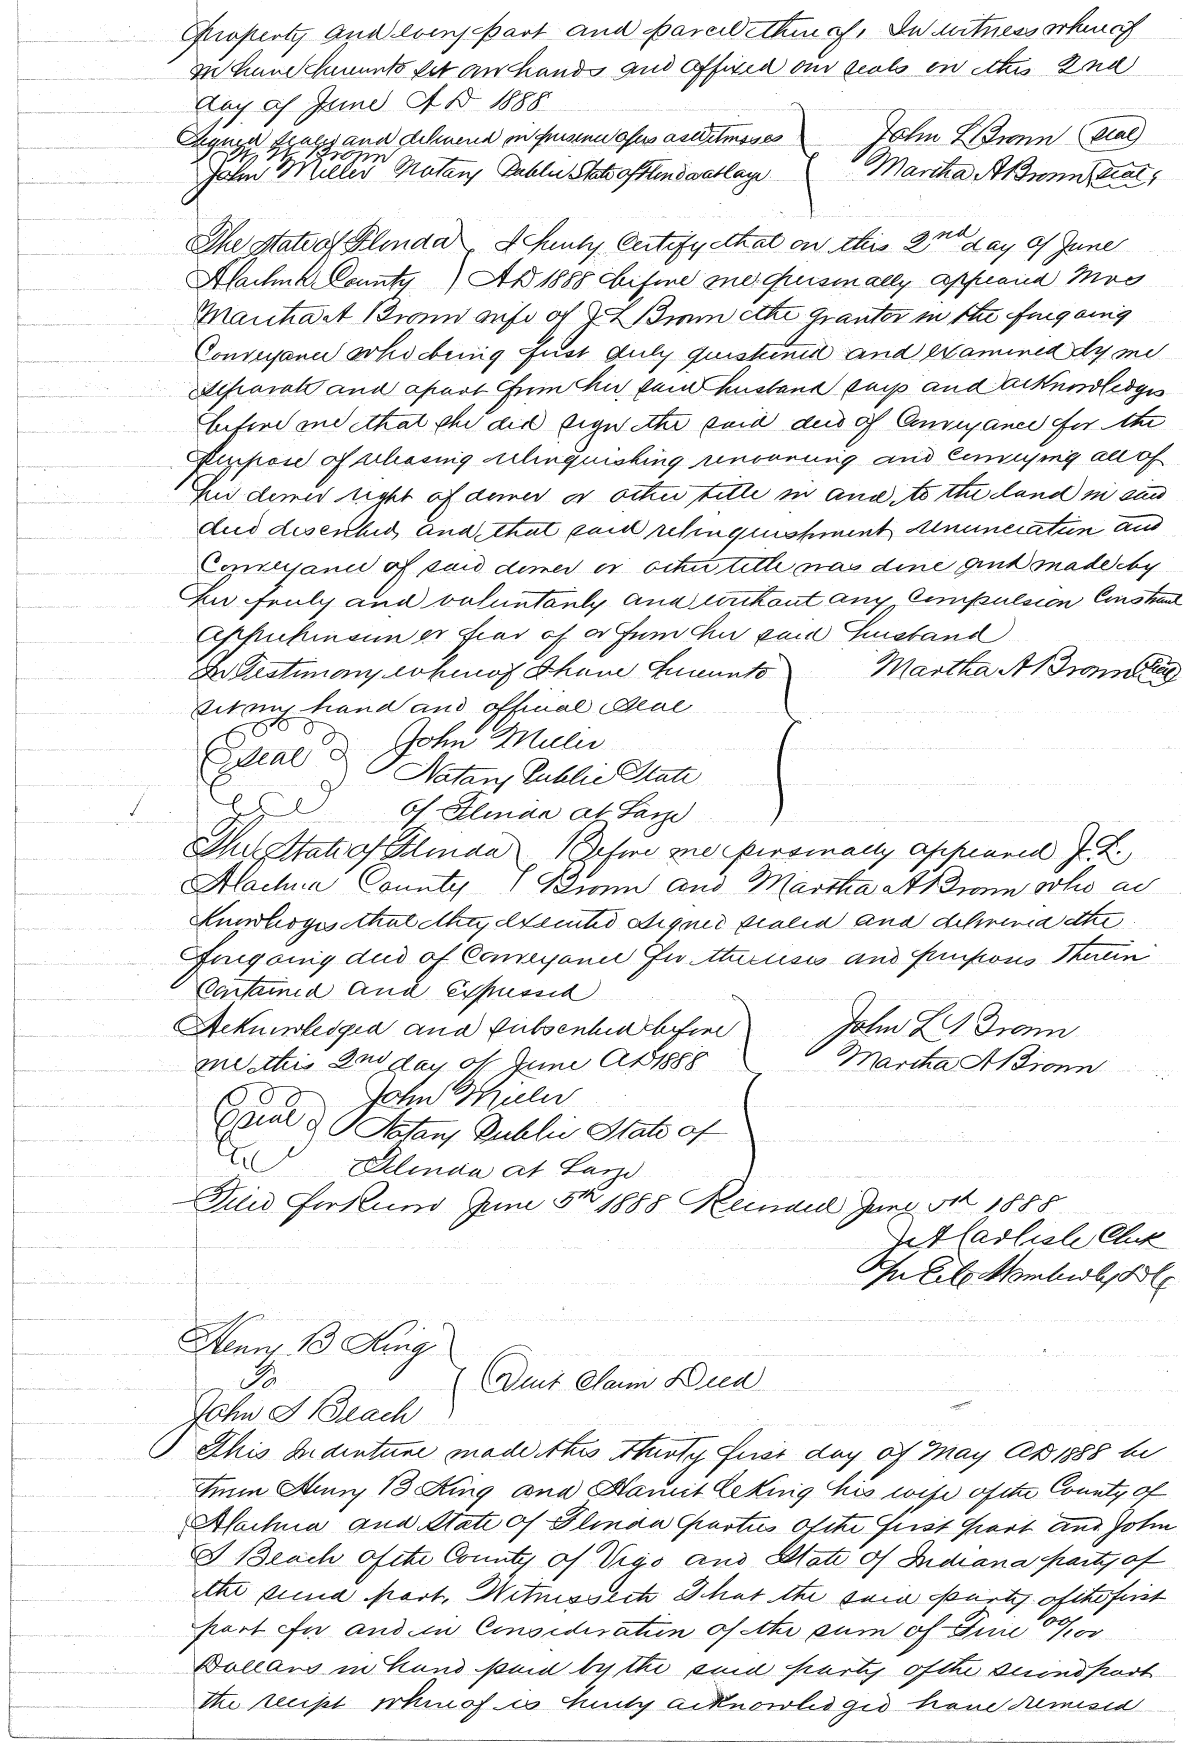 Property and every part and parcel thereof, In witness whereof
we have hereunto set our hands and affixed our seals on this 2nd
day of June A D 1888
Signed sealed and delivered in presence of us as witnesses John L Bronn (seal)
Bronn
John Miller Notary Public State of Florida at large Martha A Bronn (seal)
The State of Florida ) I hereby Certify that on this 2nd day of June
Alachua County ) A D 1888 before me personally appeared Mrs
Martha A Bronn wife of J L Bronn the grantor in the foregoing
Conveyance who being first duly questioned and examined by me
separate and apart from her said husband says and acknowledges
before me that she did sign the said deed of Conveyance for the
Purpose of releasing relinquishing renouncing and Conveying all of
her dower right of dower or other title in and to the land in said
deed described and that said relinquishment renunciation and
Conveyance of said dower or other title was done and made by
her freely and voluntarily and without any Compulsion Constraint
Apprehension or fear of or from her said husband
In Testimony whereof I have hereunto Martha A Bronn (seal)
set my hand and official seal
(Seal) John Miller
Notary Public State
of Florida at Large
The State of Florida ) Before me personally appeared J. L.
Alachua County ) Bronn and Martha A Bronn who ac
knowledges that they executed signed sealed and delivered the
foregoing deed of Conveyance for the uses and purposes therein
Contained and Expressed
Acknowledged and subscribed before John L Bronn
me this 2nd day of June A D 1888 Martha A Bronn
(Seal) John Miller
Notary Public State of
Florida at Large
Filed for Record June 5th 1888 Recorded June 5th 1888
Carlisle Clerk
Per
Henry B King
To ) Quit Claim Deed
John S Beach
This Indenture made this thirty first day of May A D 1888 be
tween Henry B King and Harriet C King his wife of the County of
Alachua and State of Florida parties of the first part and John
S Beach of the County of Vigo and State of Indiana party of
the second part, Witnesseth That the said party of the first
part for and in Consideration of the sum of Five 00/100
Dollars in hand paid by the said party of the second part
the receipt whereof is hereby acknowledged have remised